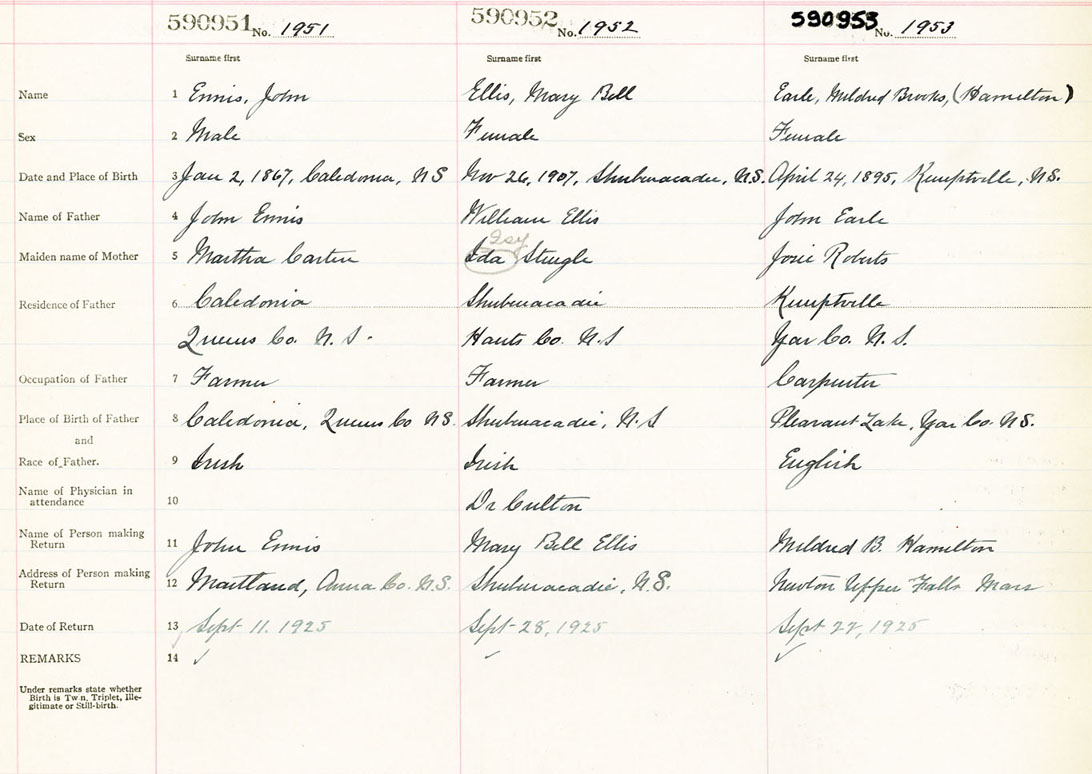 590951 No. 1951 590952 No. 1952 590953 No. 1953
Surname first Surname first Surname first
Name 1 Ennis, John Ellis, Mary Bell Earle, Mildred Brooks, (Hamilton)
Sex 2 Male Female Female
Date and Place of Birth 3 Jan 2, 1867, Caledonia, N S Nov 26, 1907, Shubenacadie, N.S. April 24, 1895, Kemptville, N.S.
Name of Father 4 John Ennis William Ellis John Earle
Isy
Maiden name of Mother 5 Martha Carten Ida Josie Roberts
Residence of Father 6 Caledonia Shubenacadie Kemptville
Queens Co. N. S. Hants Co. N.S Yar Co. N. S.
Occupation of Father 7 Farmer Farmer Carpenter
Place of Birth of Father 8 Caledonia, Queens Co N.S. Shubenacadie, N.S Pleasant Lake, Yar Co. N.S.
and
Race of Father. 9 Irish Irish English
Name of Physician in
attendance 10 Dr Culton
Name of Person making
Return 11 John Ennis Mary Bell Ellis Mildred B. Hamilton
Address of Person making
Return 12 Maitland, Anna Co. N.S. Shubenacadie, N.S. Newton Upper Falls Mass
Date of Return 13 Sept 11. 1925 Sept-28, 1925 Sept 22, 1925
REMARKS 14 ✓ ✓ ✓
Under remarks state whether
Birth is Twin, Triplet, Ille-
gitimate or Still-birth.